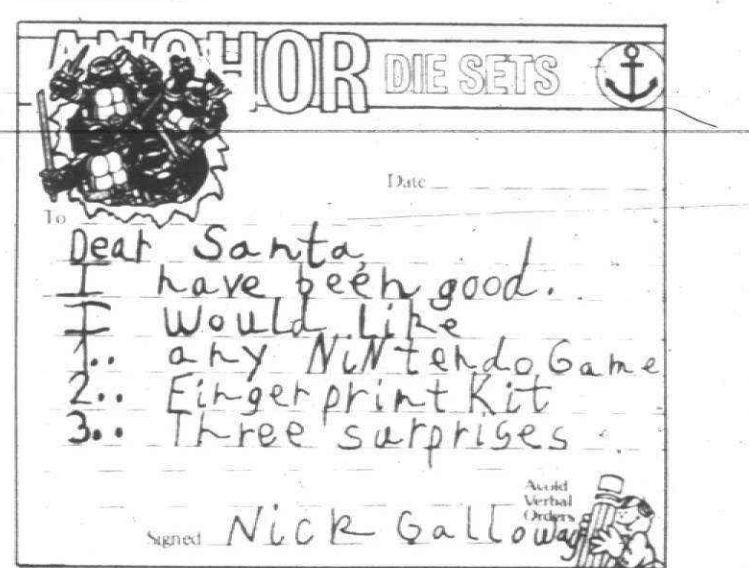 ANCHOR DIE SETS
Date
To
Dear Santa
I have been good.
I Would Like
1.. any NiNtendo Game
2.. Fingerprint Kit
3.. Three surprises
Avoid
Verbal
Orders
Signed Nick Galloway